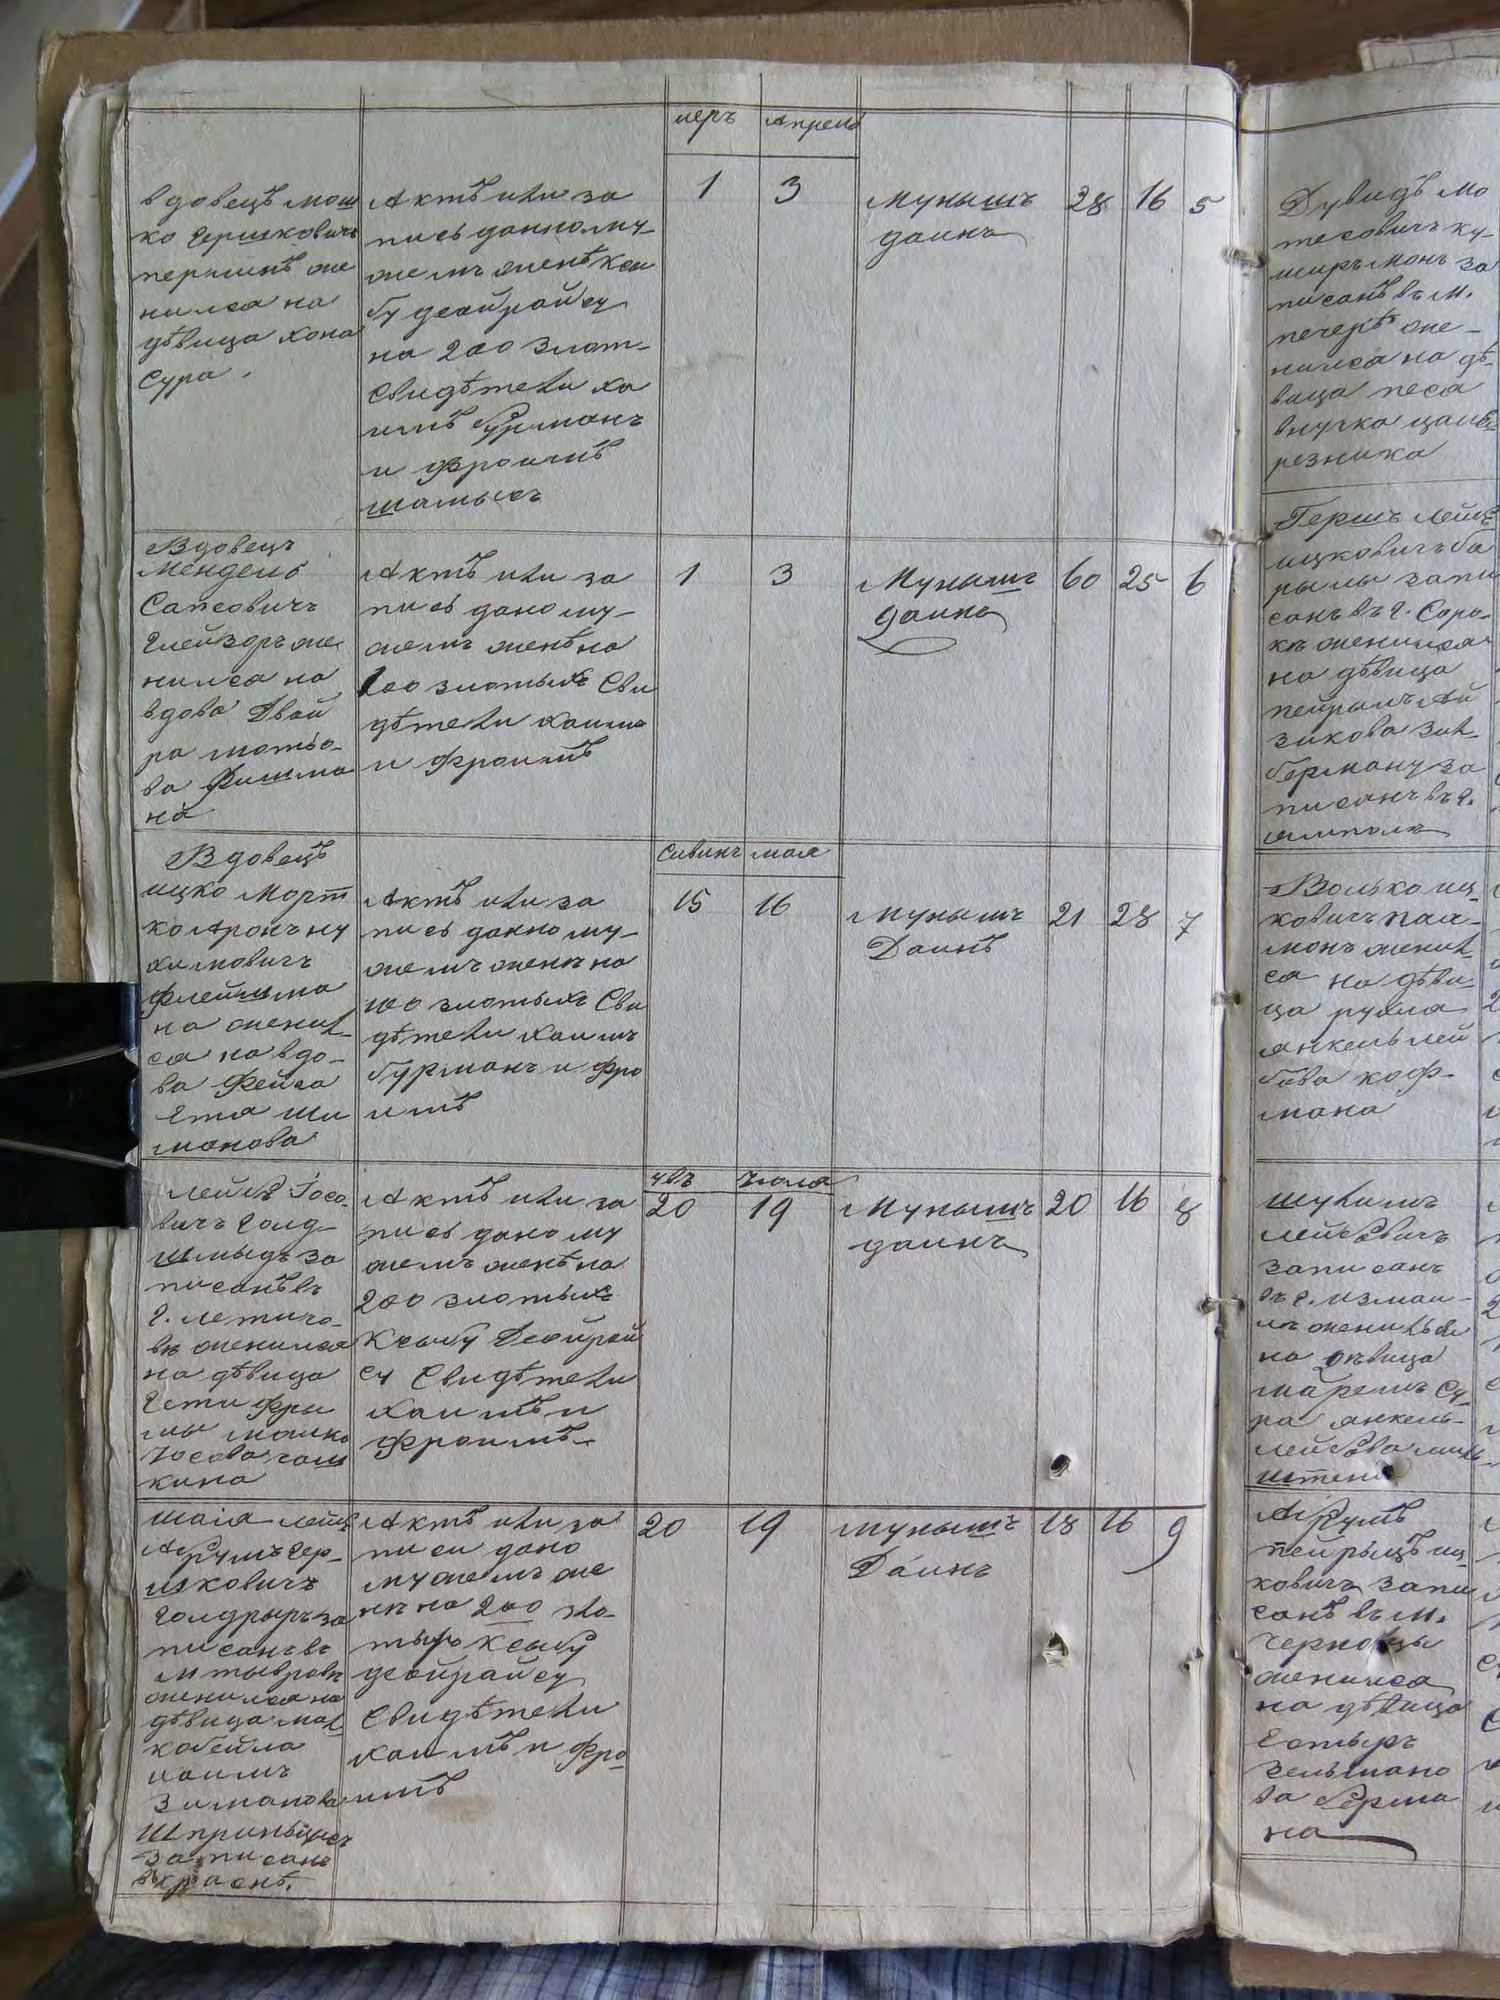 иеръ апрель
вдовецъ мош
ко Гершковичъ
перишнъ же
нился на
дѣвица хона
Сура.
Актъ или за
пись данному
жемъ женѣ ксу
бу деойрайсу
на 200 злот-
Свидѣтели ха
имъ Бурманъ
и Фроимъ
шамысъ
1 3
Мунышъ
даинъ
28 16 5
Вдовецъ
Мендель
Сапсовичъ
Глейзоръ же
нился на
вдова Двой
ра мотьо-
ва Фишма
на
Актъ или за
пись даному-
жемъ женѣ на
100 злотыхъ Сви
дѣтели хаимъ
и Фроимъ
1 3
Мунышъ
даинъ
60 25 6
Сивинъ мая
Вдовецъ
ицко Морт
ко Аронъ ну
химовичъ
Флейшма
нъ женил
ся на вдо-
ва Фейга
Етя Ши
монова
Актъ или за
пись данному-
жемъ женѣ на
100 злотыхъ Сви
дѣтели хаимъ
Бурманъ и Фро
имъ
15 16
Мунышъ
Даинъ
21 28 7
июля
Лейбъ Іосо
вичъ Голд
шмыдъ за
писанъ въ
г. Летичо-
въ женился
на дѣвица
Гести Фры
мы мошко
Іосова
кина
Актъ или за
пись даному
жемъ женѣ на
200 злотыхъ
Ксыбу Деойрай
су Свидѣтели
Хаимъ и
Фроимъ
20 19
Мунышъ
даинъ
20 16 8
Шаія лейбъ
Абрумъ Гер-
шковичъ
Голдрыръ за
писанъ въ
м тывровъ
женился на
дѣвица мал
ка бейла
хаимъ
Зимонова
Шпринцысъ
записанъ
въ краснѣ.
Актъ или за
писи дано
мужемъ же
нѣ на 200 зло-
тыхъ ксыбу
деойрайсу
Свидѣтели
Хаимъ и Фро
имъ
20 19
Мунышъ
Даинъ
18 16 9
Дувидъ Мо
тесовичъ ку-
ширъ монъ за
писанъ въ м.
печерѣ же-
нился на дѣ-
вица песа
внучка
резника
Гершъ лейбъ
ицковичъ ба
рылы запи
санъ въ г. Соро-
къ женился
на дѣвица
пейралъ Ай
зикова Зил-
берману за
писанъ въ г.
ямполѣ
Волько иц-
ковичъ Пал-
монъ женил
ся на дѣви-
ца рухля
янкель лей
бова коф-
мана
Шулимъ
лейбовичъ
записанъ
въ г. измаи-
лъ женилься
на дѣвица
маремъ Су-
ра янкель-
лейбова миль-
штена
Абрумъ
пейрыцъ иц-
ковичъ запи
санъ въ м.
Черновцы
женился
на дѣвица
Естыръ
Зельмано
ва Берма
на